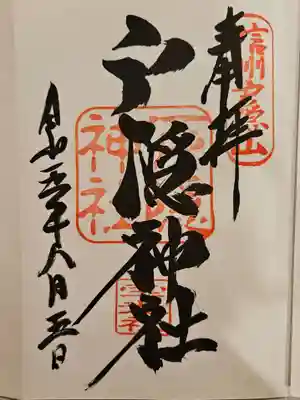 信州戸隠山
奉拝
戸隠神社
戸隠神社
令和五年八月五日